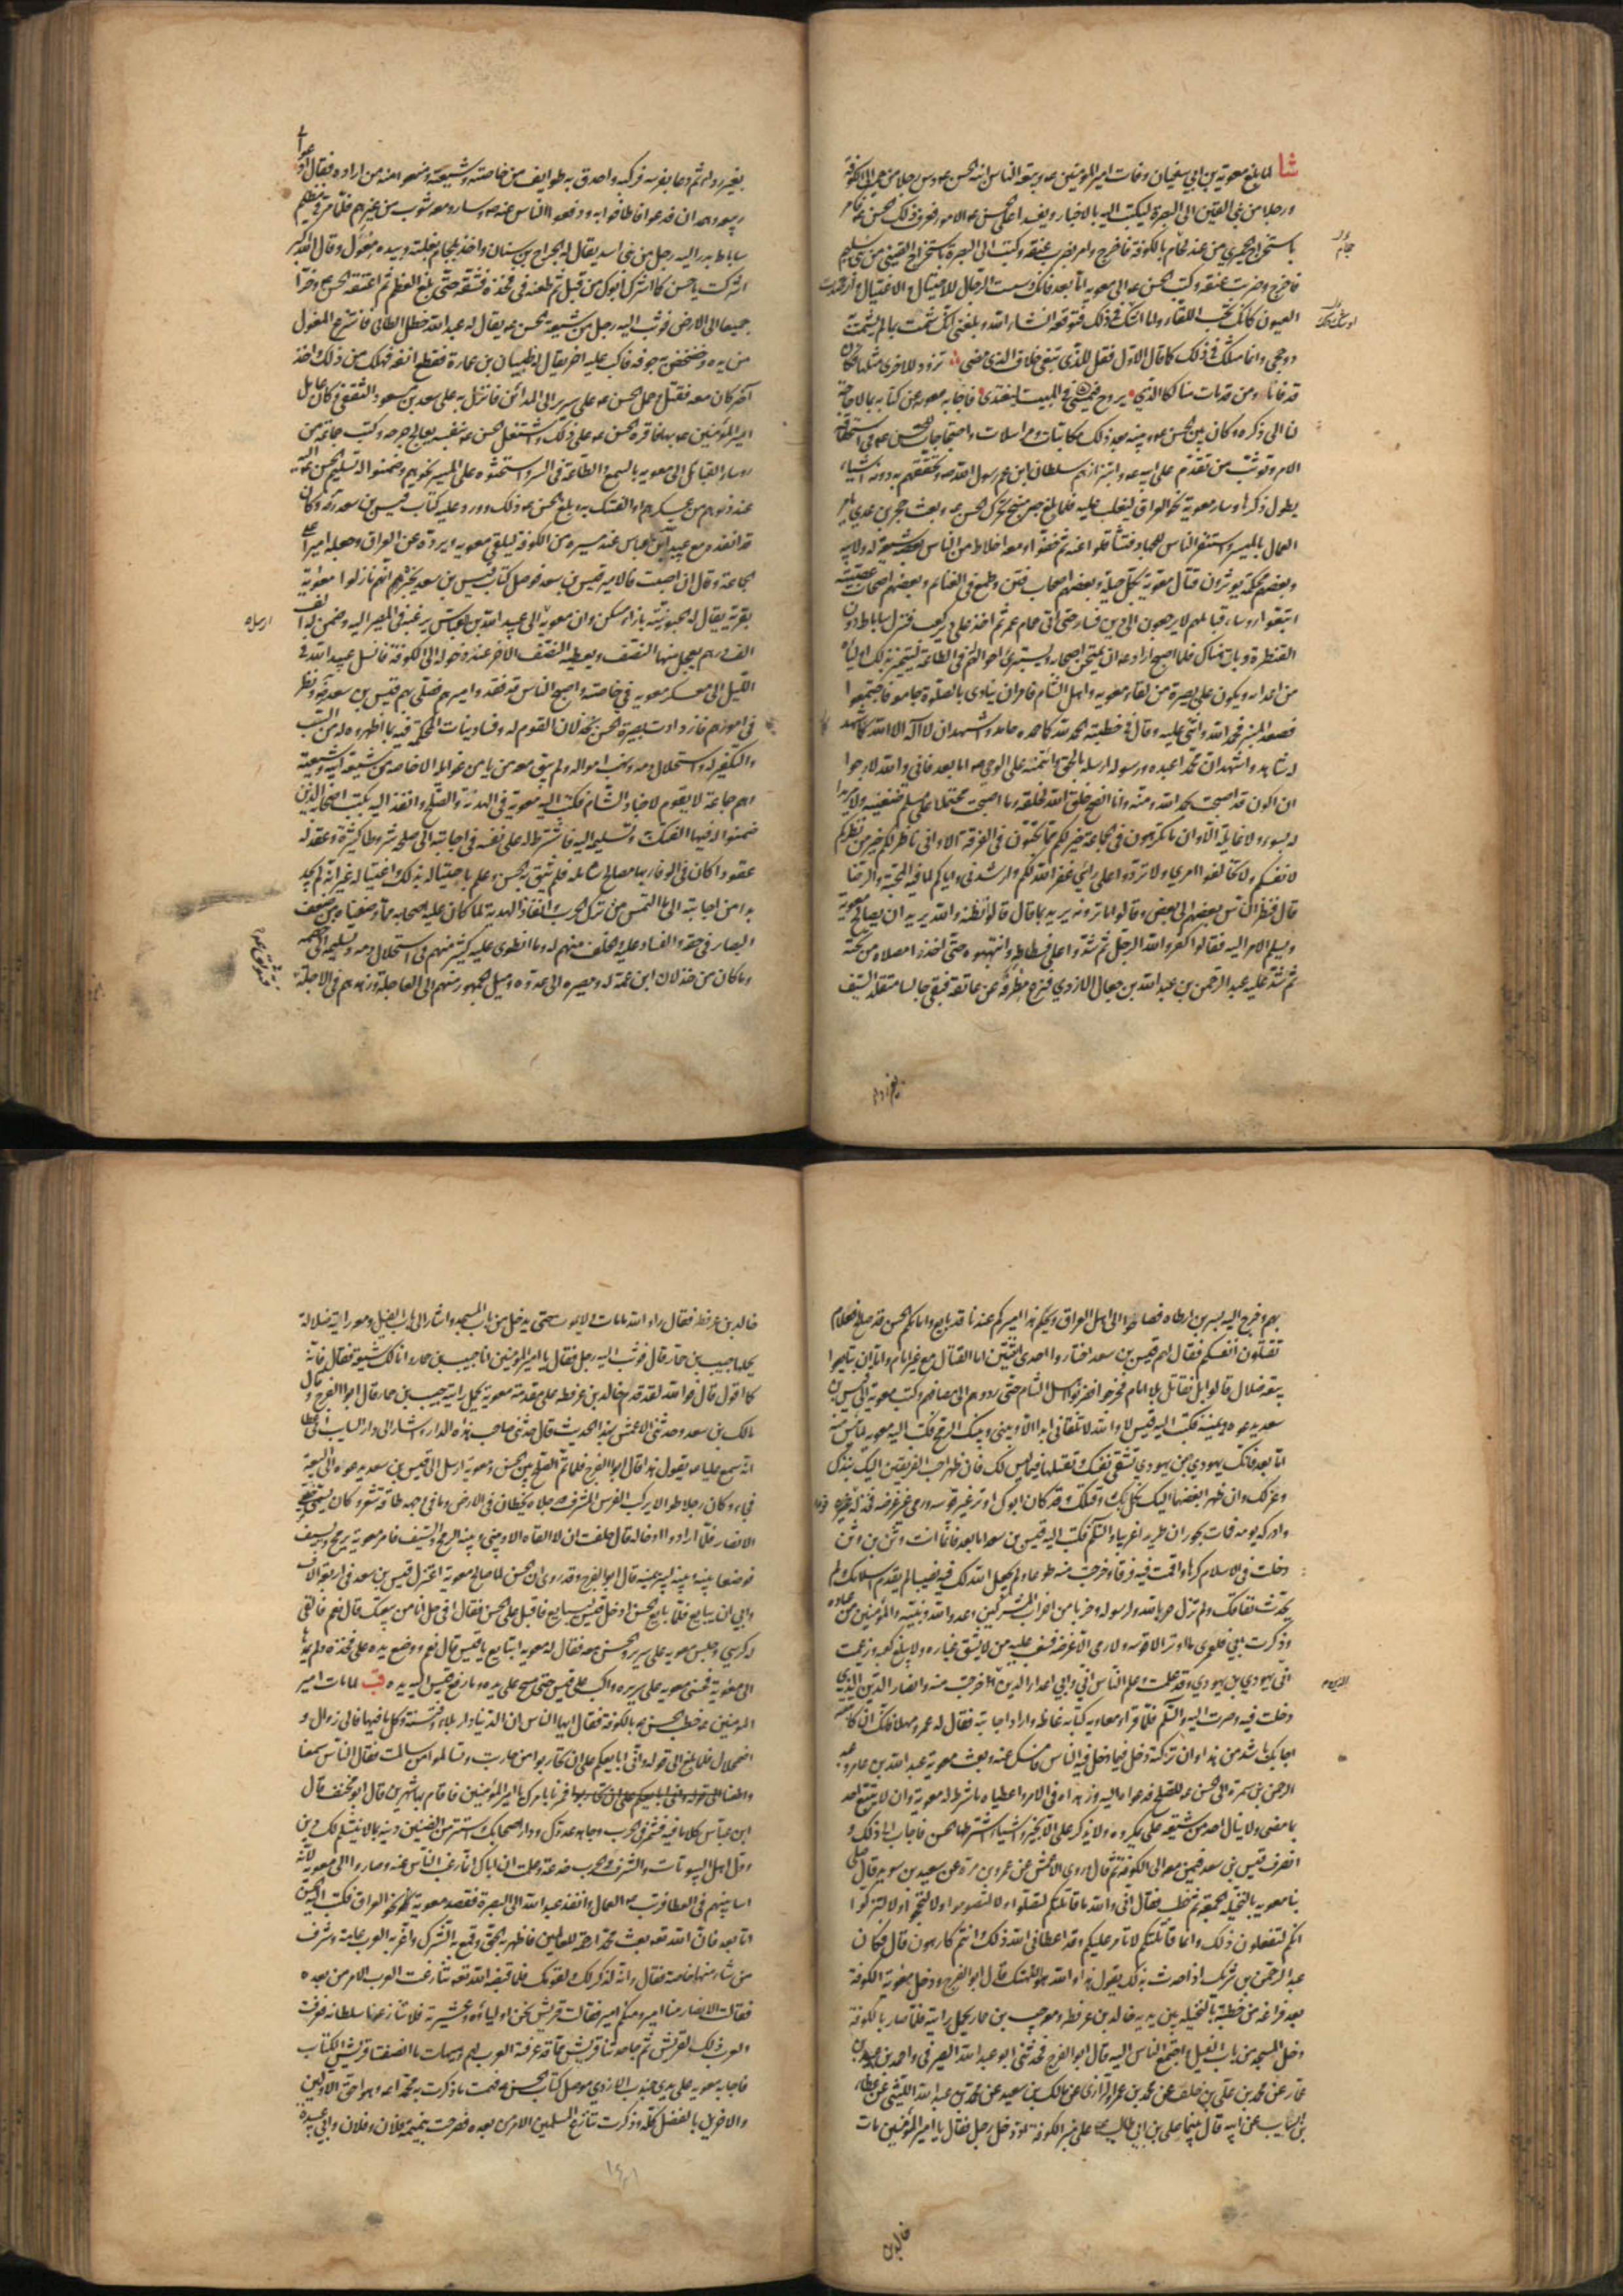 شا لما بلغ معوية بن ابي سفيان وفات امير المؤمنين ع وبيعة الناس ابنه الحسن ع دس رجلا من حمير الى الكوفة
ورجلا من بني القين الى البصرة ليكتبا اليه بالاخبار ويفسدا على الحسن ع الامور فعرف ذلك الحسن ع فامر
باستخراج الحميري من عند لحام بالكوفة فاخرج وامر بضرب عنقه وكتب الى البصرة باستخراج القيني من بني سليم
فاخرج وضربت عنقه وكتب الحسن ع الى معويه اما بعد فانك دسست الرجال للاحتيال والاغتيال وارصدت
العيون كانك تحب اللقاء وما اشك في ذلك فتوقعه انشاء الله وبلغني انك شمت بما لم يشمت
ذو حجى وانما مثلك في ذلك كما قال الاول فقل للذي يبغي خلاف الذي مضى تزود لاخرى مثلها فكان
قد فانا ومن قد مات منا لكالذي يروح فيمسي في المبيت ليغتدي فاجابه معويه عن كتابه بما لا حاجة
لنا الى ذكره وكان بين الحسن ع وبينه بعد ذلك مكاتبات ومراسلات واحتجاجات للحسن ع في استحقاقه
الامر وتوثب من تقدم على ابيه ع وابتزازهم سلطان ابن عم رسول الله ص وتحققهم به دونه اشياء
يطول ذكرها وسار معوية نحو العراق ليغلب عليه فلما بلغ جسر منبج تحرك الحسن ع وبعث حجر بن عدي يامر
العمال بالمسير واستنفر الناس للجهاد فتثاقلوا عنه ثم خفوا ومعه اخلاط من الناس بعضهم شيعة له ولابيه
وبعضهم محكمة يوثرون قتال معوية بكل حيلة وبعضهم اصحاب فتن وطمع في الغنايم وبعضهم اصحاب عصبية
اتبعوا روساء قبايلهم لا يرجعون الى دين فسار حتى اتى حمام عمر ثم اخذ على دير كعب فنزل ساباط دون
القنطرة وبات هناك فلما اصبح اراد ع ان يمتحن اصحابه ويستبرئ احوالهم في الطاعة ليتميز بذلك اولياءه
من اعدائه ويكون على بصيرة من لقاء معويه واهل الشام فامر ان ينادى بالصلوة جامعة فاجتمعوا
فصعد المنبر فحمد الله واثنى عليه وقال في خطبته الحمد لله كلما حمده حامد واشهد ان لا اله الا الله كلما شهد
له شاهد واشهد ان محمدا عبده ورسوله ارسله بالحق وائتمنه على الوحي ص اما بعد فاني والله لارجوا
ان اكون قد اصبحت بحمد الله ومنه وانا انصح خلق الله لخلقه وما اصبحت محتملا على مسلم ضغينة ولا مريدا
له بسوء ولا غايلة الا وان ما تكرهون في الجماعة خير لكم مما تحبون في الفرقة الا واني ناظر لكم خير من نظركم
لانفسكم ولا تخالفوا امري ولا تردوا علي رائي غفر الله لكم وارشدني واياكم لما فيه المحبة والرضا
قال فنظر الناس بعضهم الى بعض وقالوا ما ترونه يريد بما قال قالوا نظنه والله يريد ان يصالح معوية
ويسلم الامر اليه فقالوا كفر والله الرجل ثم شدوا على فسطاطه وانتهبوه حتى اخذوا مصلاه من تحته
ثم شد عليه عبد الرحمن بن عبد الله بن جعال الازدي فنزع مطرفه عن عاتقه فبقي جالسا متقلدا السيف
بغير رداء
بغير رداء ثم دعا بفرسه فركبه واحدق به طوايف من خاصته وشيعته ومنعوا منه من اراده فقال ادعوا
ربيعه وهمدان فدعوا فاطافوا به ودفعوا الناس عنه ع وسار ومعه شوب من غيرهم فلما مر في مظلم
ساباط بدر اليه رجل من بني اسد يقال له الجراح بن سنان واخذ بلجام بغلته وبيده مغول وقال الله اكبر
اشركت يا حسن كما اشرك ابوك من قبل ثم طعنه في فخذه فشقه حتى بلغ العظم ثم اعتنقه الحسن ع وخرا
جميعا الى الارض فوثب اليه رجل من شيعة الحسن ع يقال له عبد الله خطل الطائي فانتزع المغول
من يده وخضخض به جوفه فاكب عليه اخر يقال له ظبيان بن عمارة فقطع انفه فهلك من ذلك واخذ
آخر كان معه فقتل وحمل الحسن ع على سرير الى المدائن فانزل به على سعد بن مسعود الثقفي وكان عامل
امير المؤمنين ع بها فاقره الحسن ع على ذلك واشتغل الحسن ع بنفسه يعالج جرحه وكتب جماعة من
روساء القبائل الى معويه بالسمع والطاعة في السر واستحثوه على المسير نحوهم وضمنوا له تسليم الحسن ع اليه
عند دنوهم من عسكرهم او الفتك به وبلغ الحسن ع ذلك وورد عليه كتاب قيس بن سعد ره وكان
قد انفذه مع عبيد الله بن عباس عند مسيره من الكوفة ليلقى معويه ويرده عن العراق وجعله اميرا على
الجماعة وقال ان اصبت فالامير قيس بن سعد فوصل كتاب قيس بن سعد يخبرهم انهم نازلوا معاوية
بقرية يقال لها الحبونية بازاء مسكن وان معويه الى عبيد الله بن عباس يرغبه في المصير اليه وضمن له الف
الف درهم يعجل منها النصف ويعطيه النصف الاخر عند دخوله الى الكوفة فانسل عبيد الله في
الليل الى معسكر معويه في خاصته واصبح الناس قد فقدوا اميرهم فصلى بهم قيس بن سعد ره ونظر
في امورهم فازدادت بصيرة الحسن بخذلان القوم له وفساد نيات المحكمة فيه بما اظهروه له من السب
والتكفير له واستحلال دمه ونهب امواله ولم يبق معه من يامن غوايله الا خاصة من شيعة ابيه وشيعته
وهم جماعة لا يقوم لاجناد الشام فكتب اليه معوية في الهدنة والصلح وانفذ اليه بكتب اصحابه الذين
ضمنوا له فيها الفتك به وتسليمه اليه فاشترط له على نفسه في اجابته الى صلحه شروطا كثيرة وعقد له
عقودا كان في الوفاء بها مصالح شاملة فلم يثق به الحسن ع وعلم باحتياله بذلك واغتياله غير انه لم يجد
بدا من اجابته الى ما التمس من ترك الحرب وانفاذ الهدنة لما كان عليه اصحابه مما وصفناه من ضعف
البصائر في حقه والفساد عليه والخلف منهم له وما انطوى عليه كثير منهم في استحلال دمه وتسليمه الى خصمه
وما كان من خذلان ابن عمه له ومصيره الى عدوه وميل الجمهور منهم الى العاجلة وزهدهم في الاجلة
بهم وخرج اليه بسر بن ارطاه فصاحوا الى اهل العراق ويحكم هذا اميركم عندنا قد بايع وامامكم الحسن قد صالح فعلام
تقتلون انفسكم فقال لهم قيس بن سعد اختاروا احدى اثنتين اما القتال مع غير امام واما ان تبايعوا
بيعة ضلال قالوا بل نقاتل بلا امام فخرجوا فضربوا اهل الشام حتى ردوهم الى مصافهم وكتب معوية الى قيس بن
سعد يدعوه ويمنيه فكتب اليه قيس لا والله لا تلقاني ابدا الا وبيني وبينك الرمح فكتب اليه معويه لما يئس منه
اما بعد فانك يهودي بن يهودي تشقي نفسك وتقتلها فيما ليس لك فان ظهر احب الفريقين اليك نبذك
وعزلك وان ظهر ابغضهما اليك نكل بك وقتلك وقد كان ابوك اوتر غير قوسه ورمى غير غرضه
وادركه يومه فمات بحوران طريدا غريبا والسلم فكتب اليه قيس بن سعد اما بعد فانما انت وثن بن وثن
دخلت في الاسلام كرها واقمت فيه فرقا وخرجت منه طوعا ولم يجعل الله لك فيه نصيبا لم يقدم اسلامك ولم
يحدث نفاقك ولم تزل حربا لله ولرسوله وحزبا من احزاب المشركين وعدوا لله ونبيه والمؤمنين من عباده
وذكرت ابي فلعمري ما اوتر الا قوسه ولا رمى الا غرضه فشغب عليه من لا يشق غباره ولا يبلغ كعبه وزعمت
اني يهودي بن يهودي وقد علمت وعلم الناس اني وابي اعداء الدين خرجت منه وانصار الدين الذي
دخلت فيه وصرت اليه والسلم فلما قرا معاويه كتابه غاظه واراد اجابته فقال له عمرو مهلا فانك ان كاتبته
اجابك باشد من هذا وان تركته دخل فيما دخل فيه الناس فامسك عنه وبعث معوية عبد الله بن عامر وعبد
الرحمن بن سمرة الى الحسن ع للصلح فدعواه اليه وزهداه في الامر واعطياه ما شرط له معوية وان لا يتبع احد
بما مضى ولا ينال احد من شيعة علي بمكروه ولا يذكر علي الا بخير واشياء اشترطها الحسن فاجاب الى ذلك و
انصرف قيس بن سعد فيمن معه الى الكوفة ثم قال وروى الاعمش عن عمرو بن مرة عن سعيد بن سويد قال صلى
بنا معويه بالنخيلة الجمعة ثم خطب فقال اني والله ما قاتلتكم لتصلوا ولا لتصوموا ولا لتحجوا ولا لتزكوا
انكم لتفعلون ذلك وانما قاتلتكم لاتامر عليكم وقد اعطاني الله ذلك وانتم كارهون قال فكان
عبد الرحمن بن شريك اذا حدث بذلك يقول هذا والله هو التهتك قال ابو الفرج ودخل معوية الكوفة
بعد فراغه من خطبته بالنخيلة بين يديه خالد بن عرفطة ومعه حبيب بن حمار يحمل رايته فلما صار بالكوفة
دخل المسجد من باب الفيل واجتمع الناس اليه قال ابو الفرج فحدثني ابو عبد الله الصيرفي واحمد بن عبيد بن
عمار عن محمد بن علي بن خلف عن محمد بن عمرو الرازي عن مالك بن سعيد عن محمد بن عبد الله الليثي عن عطاء
بن السايب عن ابيه قال بينما علي بن ابي طالب ع على منبر الكوفة اذ دخل رجل فقال يا امير المؤمنين مات
خالد بن
خالد بن عرفطة فقال لا والله ما مات ولا يموت حتى يدخل من باب المسجد واشار الى باب الفيل ومعه راية ضلالة
يحملها حبيب بن حمار قال فوثب اليه رجل فقال يا امير المؤمنين انا حبيب بن حمار وانا لك شيعة فقال فانه
كما اقول قال فوالله لقد قدم خالد بن عرفطة على مقدمة معوية يحمل رايته حبيب بن حمار قال ابو الفرج وقال
مالك بن سعد وحدثني الاعمش بهذا الحديث قال حدثني صاحب هذه الدار واشار الى دار السايب ابي عطاء
انه سمع عليا ع يقول هذا قال ابو الفرج فلما تم الصلح بين الحسن ومعوية ارسل الى قيس بن سعد يدعوه الى البيعة
فجاء وكان رجلا طوالا يركب الفرس المشرف ورجلاه تخطان في الارض وما في وجهه طاقة شعر وكان يسمى خصي
الانصار فلما ارادوا ادخاله قال حلفت ان لا القاه الا وبيني وبينه الرمح والسيف فامر معوية برمح وسيف
فوضعا بينه وبينه ليبر يمينه قال ابو الفرج وقد روي ان الحسن لما صالح معوية اعتزل قيس بن سعد في اربعة الاف
وابى ان يبايع فلما بايع الحسن ادخل قيس ليبايع فاقبل على الحسن فقال افي حل انا من بيعتك قال نعم فالقي
له كرسي وجلس معويه على سرير والحسن معه فقال له معوية اتبايع يا قيس قال نعم ووضع يده على فخذه ولم يمدها
الى معوية فجنى معويه على سريره واكب على قيس حتى مسح على يده وما رفع قيس اليه يده قب لما مات امير
المؤمنين ع خطب الحسن ع بالكوفة فقال ايها الناس ان الدنيا دار بلاء وفتنة وكل ما فيها فالى زوال و
اضمحلال فلما بلغ الى قوله واني ابايعكم على ان تحاربوا من حاربت وتسالموا من سالمت فقال الناس سمعنا
واطعنا فمرنا بامرك يا امير المؤمنين فاقام بها شهرين قال ابو مخنف قال
ابن عباس كلاما فيه فشمر في الحرب وجاهد عدوك ودار اصحابك واستتر من الضنين دينه بما لا ينثلم لك دين
وول اهل البيوتات والشرف والحرب خدعة وعلمت ان اباك انما رغب الناس عنه وصاروا الى معوية لانه
اسا بينهم في العطا فرتب ع العمال وانفذ عبد الله الى البصرة فقصد معوية نحو العراق فكتب اليه الحسن
اما بعد فان الله تعه بعث محمدا رحمة للعالمين فاظهر به الحق وقمع به الشرك واعز به العرب عامة وشرف
من شاء منها خاصة فقال وانه لذكر لك ولقومك فلما قبضه الله تعه تنازعت العرب الامر من بعده
فقالت الانصار منا امير ومنكم امير فقالت قريش نحن اولياؤه وعشيرته فلا تنازعونا سلطانه فعرفت
العرب ذلك لقريش ثم جاحدتنا قريش ما قد عرفته العرب لهم وهيهات ما انصفتنا قريش الكتاب
فاجابه معويه على يدي جندب الازدي موصل كتاب الحسن ع فهمت ما ذكرت به محمدا ص وهو احق الاولين
والاخرين بالفضل كله وذكرت تنازع المسلمين الامر من بعده فصرحت بنميمة فلان وفلان وابي عبيدة